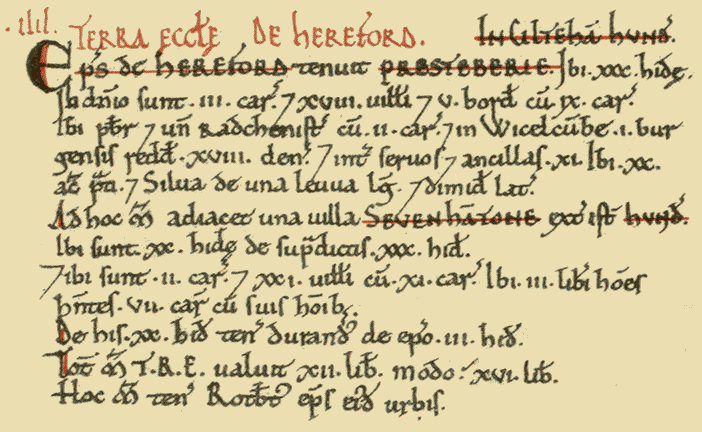 .IIII. TERRA ECCŁE DE HEREFORD. IN CILTEHĀ HVND̄.
Ep̄s de HEREFORD tenuit PRESTEBERIE. Ibi .xxx. hidę.
In dn̄io sunt .III. car̄. ⁊ xviii. uilłi ⁊ v. bord̄ cū .ix. car̄.
Ibi pb̄r ⁊ un̄ Radchenist̄ cū .II. car̄. ⁊ in Wicelcūbe .I. bur
gensis redd̄ .xviii. den̄. ⁊ int̄ seruos ⁊ ancillas .xi. Ibi .xx.
ac̄ p̄ti. ⁊ Silua de una leuua lḡ. ⁊ dimid̄ lat̄.
Ad hoc m̄ adiacet una uilla SEVENHĀTONE ext̄ ist̄ HVND̄.
Ibi sunt .xx. hidę de sup̄dictis .xxx. hid̄.
⁊ ibi sunt .II. car̄. ⁊ xxi. uilłi cū .xi. car̄. Ibi .III. lib̄i hōes
hn̄tes .vii. car̄ cū suis hōib;.
De his .xx. hid̄ ten̄ durand' de ep̄o .III. hid̄.
Tot̄ m̄ T.R.E. ualuit xii. lib̄. modo: xvi. lib̄.
Hoc m̄ ten̄ Rotb̄t' ep̄s ei'd urbis.